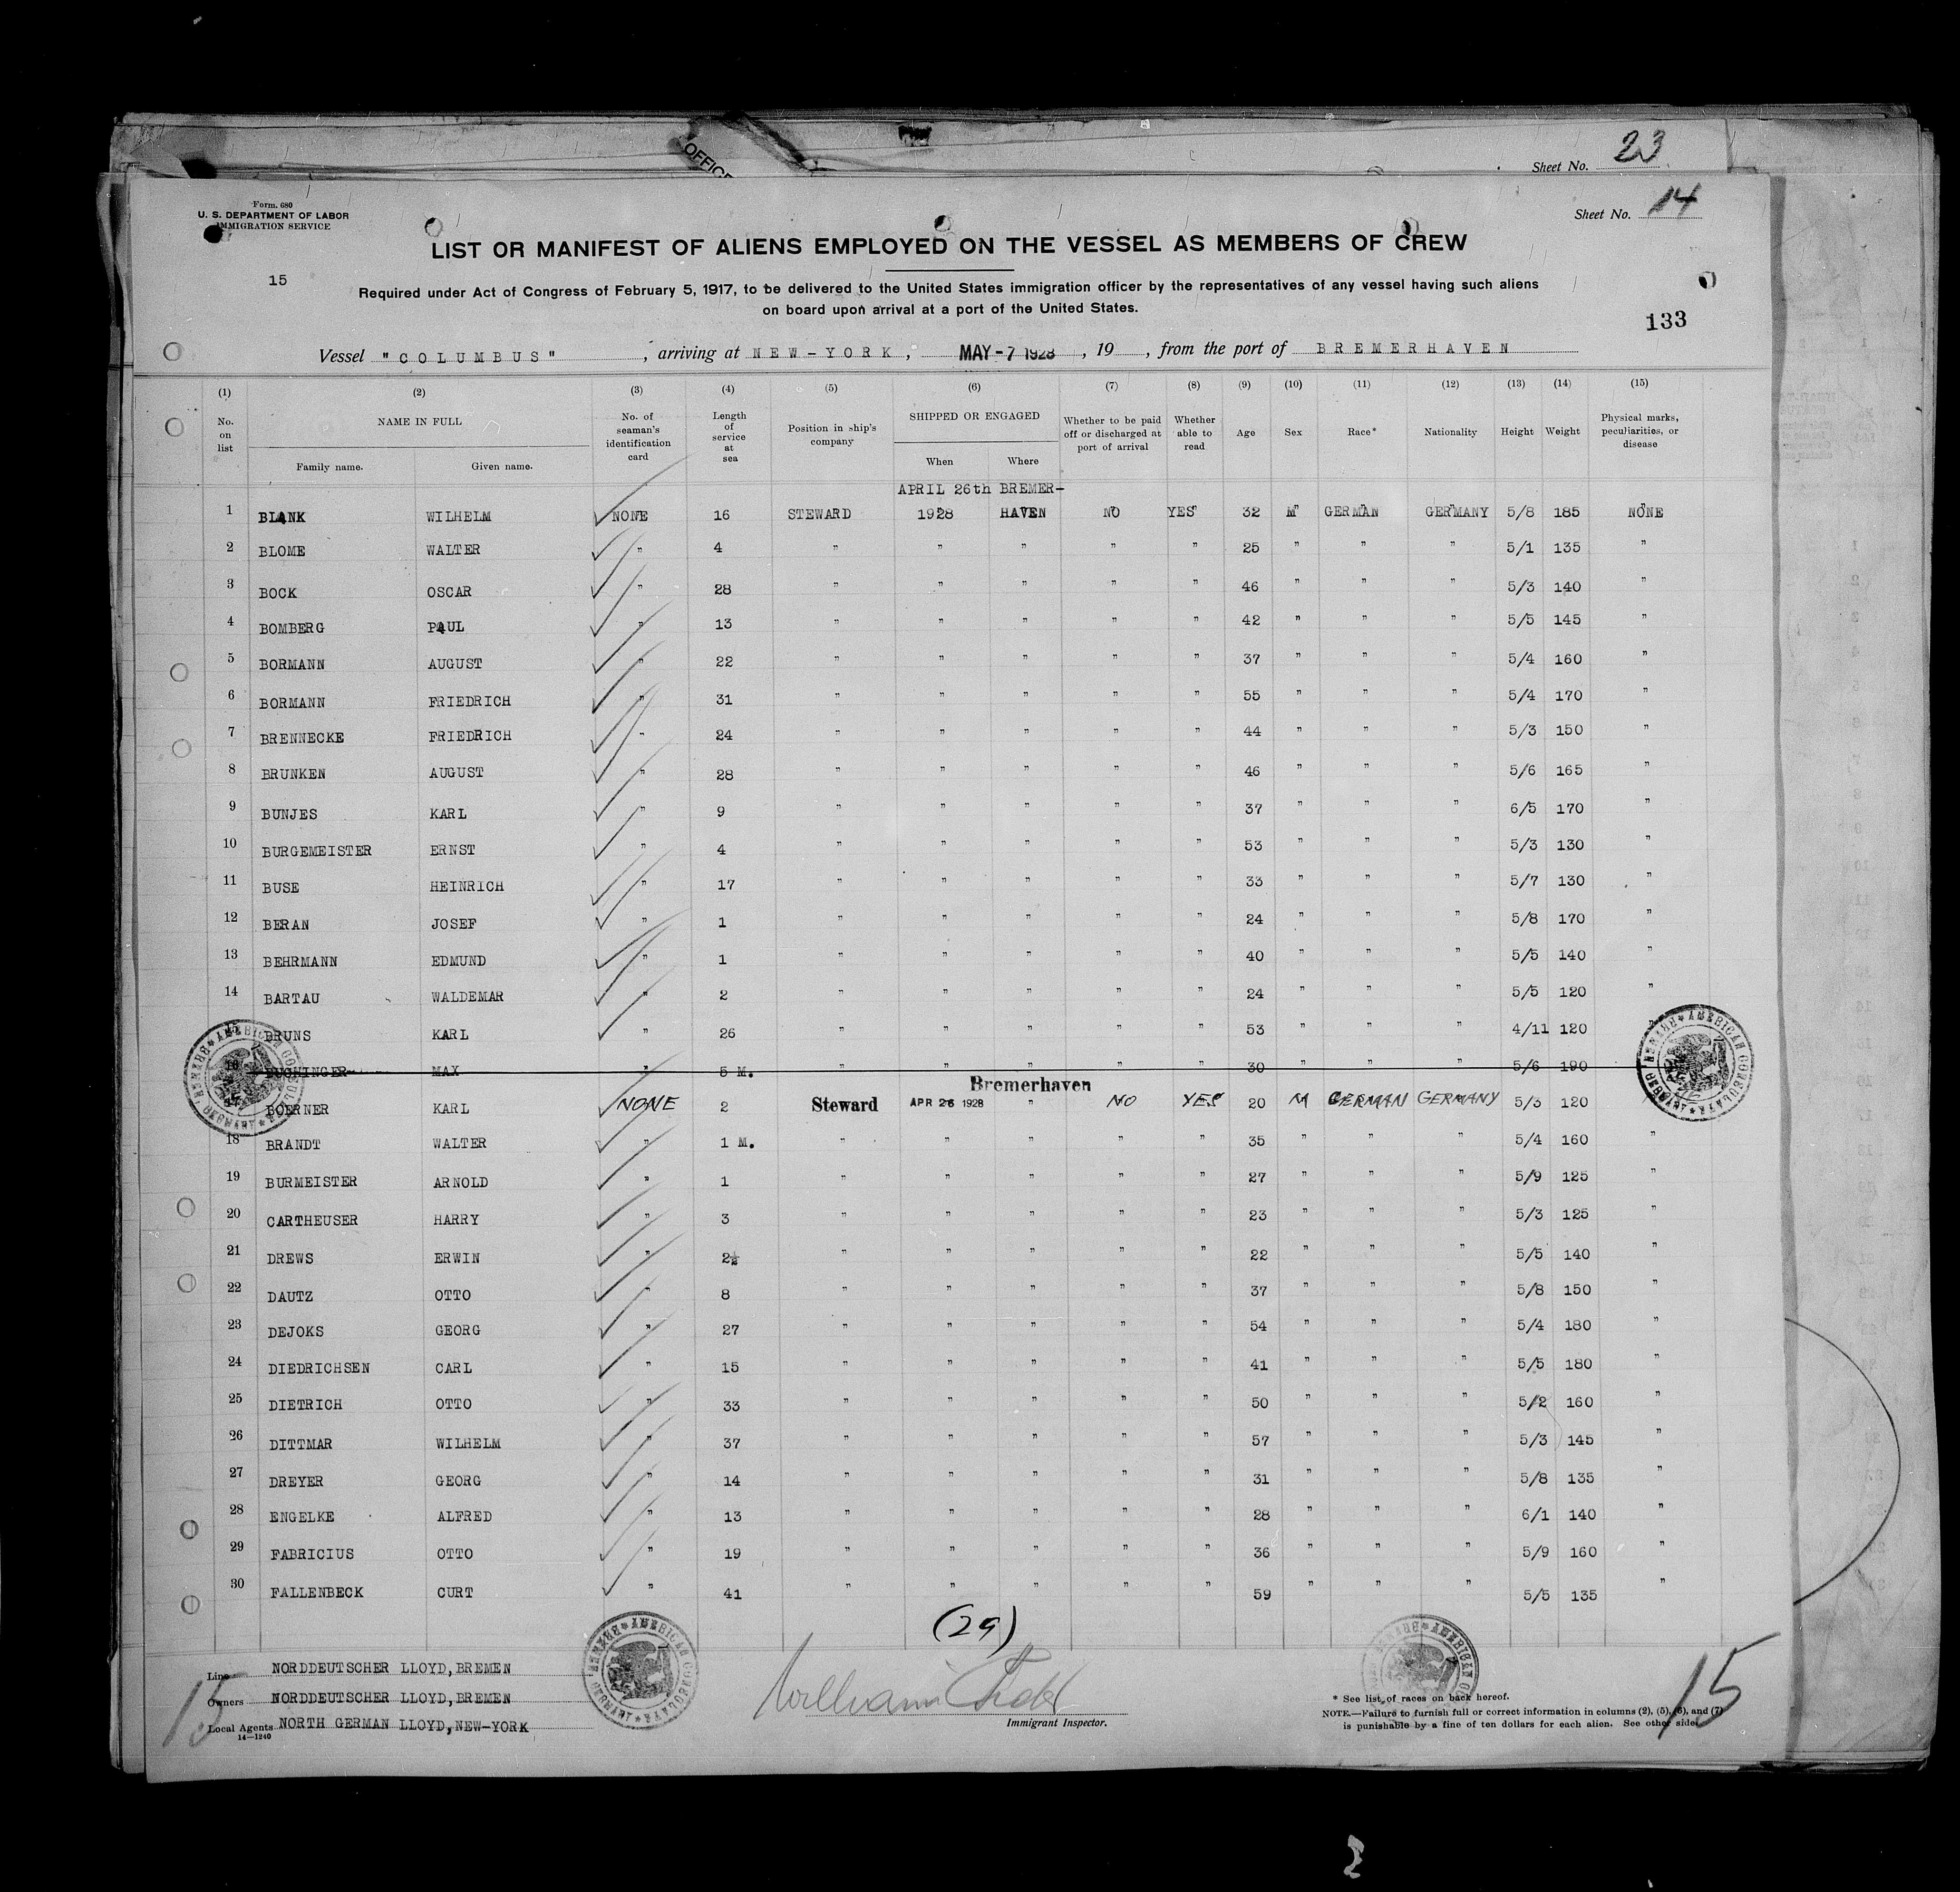 OFFICE
Sheet No. 23
Form. 680
U. S. DEPARTMENT OF LABOR
IMMIGRATION SERVICE
Sheet No. 14
LIST OR MANIFEST OF ALIENS EMPLOYED ON THE VESSEL AS MEMBERS OF CREW
15
Required under Act of Congress of February 5, 1917, to be delivered to the United States immigration officer by the representatives of any vessel having such aliens
on board upon arrival at a port of the United States.
133
Vessel "COLUMBUS" , arriving at NEW-YORK, MAY-7 1928 , 19 , from the port of BREMERHAVEN
(1) (2) (3) (4) (5) (6) (7) (8) (9) (10) (11) (12) (13) (14) (15)
No. on list NAME IN FULL Family name. Given name. No. of seaman's identification card Length of service at sea Position in ship's company SHIPPED OR ENGAGED When Where Whether to be paid off or discharged at port of arrival Whether able to read Age Sex Race* Nationality Height Weight Physical marks, peculiarities, or disease
APRIL 26th BREMER-
1 BLANK WILHELM NONE 16 STEWARD 1928 HAVEN NO YES 32 M GERMAN GERMANY 5/8 185 NONE
2 BLOME WALTER " 4 " " " " " 25 " " " 5/1 135 "
3 BOCK OSCAR " 28 " " " " " 46 " " " 5/3 140 "
4 BOMBERG PAUL " 13 " " " " " 42 " " " 5/5 145 "
5 BORMANN AUGUST " 22 " " " " " 37 " " " 5/4 160 "
6 BORMANN FRIEDRICH " 31 " " " " " 55 " " " 5/4 170 "
7 BRENNECKE FRIEDRICH " 24 " " " " " 44 " " " 5/3 150 "
8 BRUNKEN AUGUST " 28 " " " " " 46 " " " 5/6 165 "
9 BUNJES KARL " 9 " " " " " 37 " " " 6/5 170 "
10 BURGEMEISTER ERNST " 4 " " " " " 53 " " " 5/3 130 "
11 BUSE HEINRICH " 17 " " " " " 33 " " " 5/7 130 "
12 BERAN JOSEF " 1 " " " " " 24 " " " 5/8 170 "
13 BEHRMANN EDMUND " 1 " " " " " 40 " " " 5/5 140 "
14 BARTAU WALDEMAR " 2 " " " " " 24 " " " 5/5 120 "
15 BRUNS KARL " 26 " " " " " 53 " " " 4/11 120 "
16 BUCHINGER MAX " 5 M. " " " " " 30 " " " 5/6 190
Bremerhaven
17 BOERNER KARL NONE 2 Steward APR 26 1928 " NO YES 20 M GERMAN GERMANY 5/3 120
18 BRANDT WALTER " 1 M. " " " " " 35 " " " 5/4 160 "
19 BURMEISTER ARNOLD " 1 " " " " " 27 " " " 5/9 125 "
20 CARTHEUSER HARRY " 3 " " " " " 23 " " " 5/3 125 "
21 DREWS ERWIN " 2½ " " " " " 22 " " " 5/5 140 "
22 DAUTZ OTTO " 8 " " " " " 37 " " " 5/8 150 "
23 DEJOKS GEORG " 27 " " " " " 54 " " " 5/4 180 "
24 DIEDRICHSEN CARL " 15 " " " " " 41 " " " 5/5 180 "
25 DIETRICH OTTO " 33 " " " " " 50 " " " 5/2 160 "
26 DITTMAR WILHELM " 37 " " " " " 57 " " " 5/3 145 "
27 DREYER GEORG " 14 " " " " " 31 " " " 5/8 135 "
28 ENGELKE ALFRED " 13 " " " " " 28 " " " 6/1 140 "
29 FABRICIUS OTTO " 19 " " " " " 36 " " " 5/9 160 "
30 FALLENBECK CURT " 41 " " " " " 59 " " " 5/5 135 "
(29)
Line NORDDEUTSCHER LLOYD, BREMEN
Owners NORDDEUTSCHER LLOYD, BREMEN
Local Agents NORTH GERMAN LLOYD, NEW-YORK
14—1240
15
William
Immigrant Inspector.
* See list of races on back hereof.
NOTE.—Failure to furnish full or correct information in columns (2), (5), (6), and (7)
is punishable by a fine of ten dollars for each alien. See other side.
15